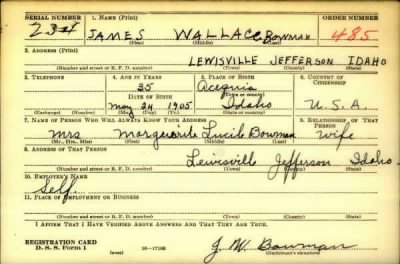 SERIAL NUMBER 1. NAME (Print) ORDER NUMBER
234 JAMES WALLACE Bowman 485
(First) (Middle) (Last)
2. ADDRESS (Print)
LEWISVILLE JEFFERSON IDAHO
(Number and street or R. F. D. number) (Town) (County) (State)
3. TELEPHONE 4. AGE IN YEARS 5. PLACE OF BIRTH 6. COUNTRY OF CITIZENSHIP
35 Acequia
DATE OF BIRTH (Town or county)
May 24 1905 Idaho U.S.A.
(Exchange) (Number) (Mo.) (Day) (Yr.) (State or country)
7. NAME OF PERSON WHO WILL ALWAYS KNOW YOUR ADDRESS 8. RELATIONSHIP OF THAT PERSON
Mrs Marguerite Lucile Bowman wife
(Mr., Mrs., Miss) (First) (Middle) (Last)
9. ADDRESS OF THAT PERSON
Lewisville Jefferson Idaho
(Number and street or R. F. D. number) (Town) (County) (State)
10. EMPLOYER'S NAME
Self.
11. PLACE OF EMPLOYMENT OR BUSINESS
(Number and street or R. F. D. number) (Town) (County) (State)
I AFFIRM THAT I HAVE VERIFIED ABOVE ANSWERS AND THAT THEY ARE TRUE.
REGISTRATION CARD J. W. Bowman
D. S. S. Form 1 (over) 16—17105 (Registrant's signature)